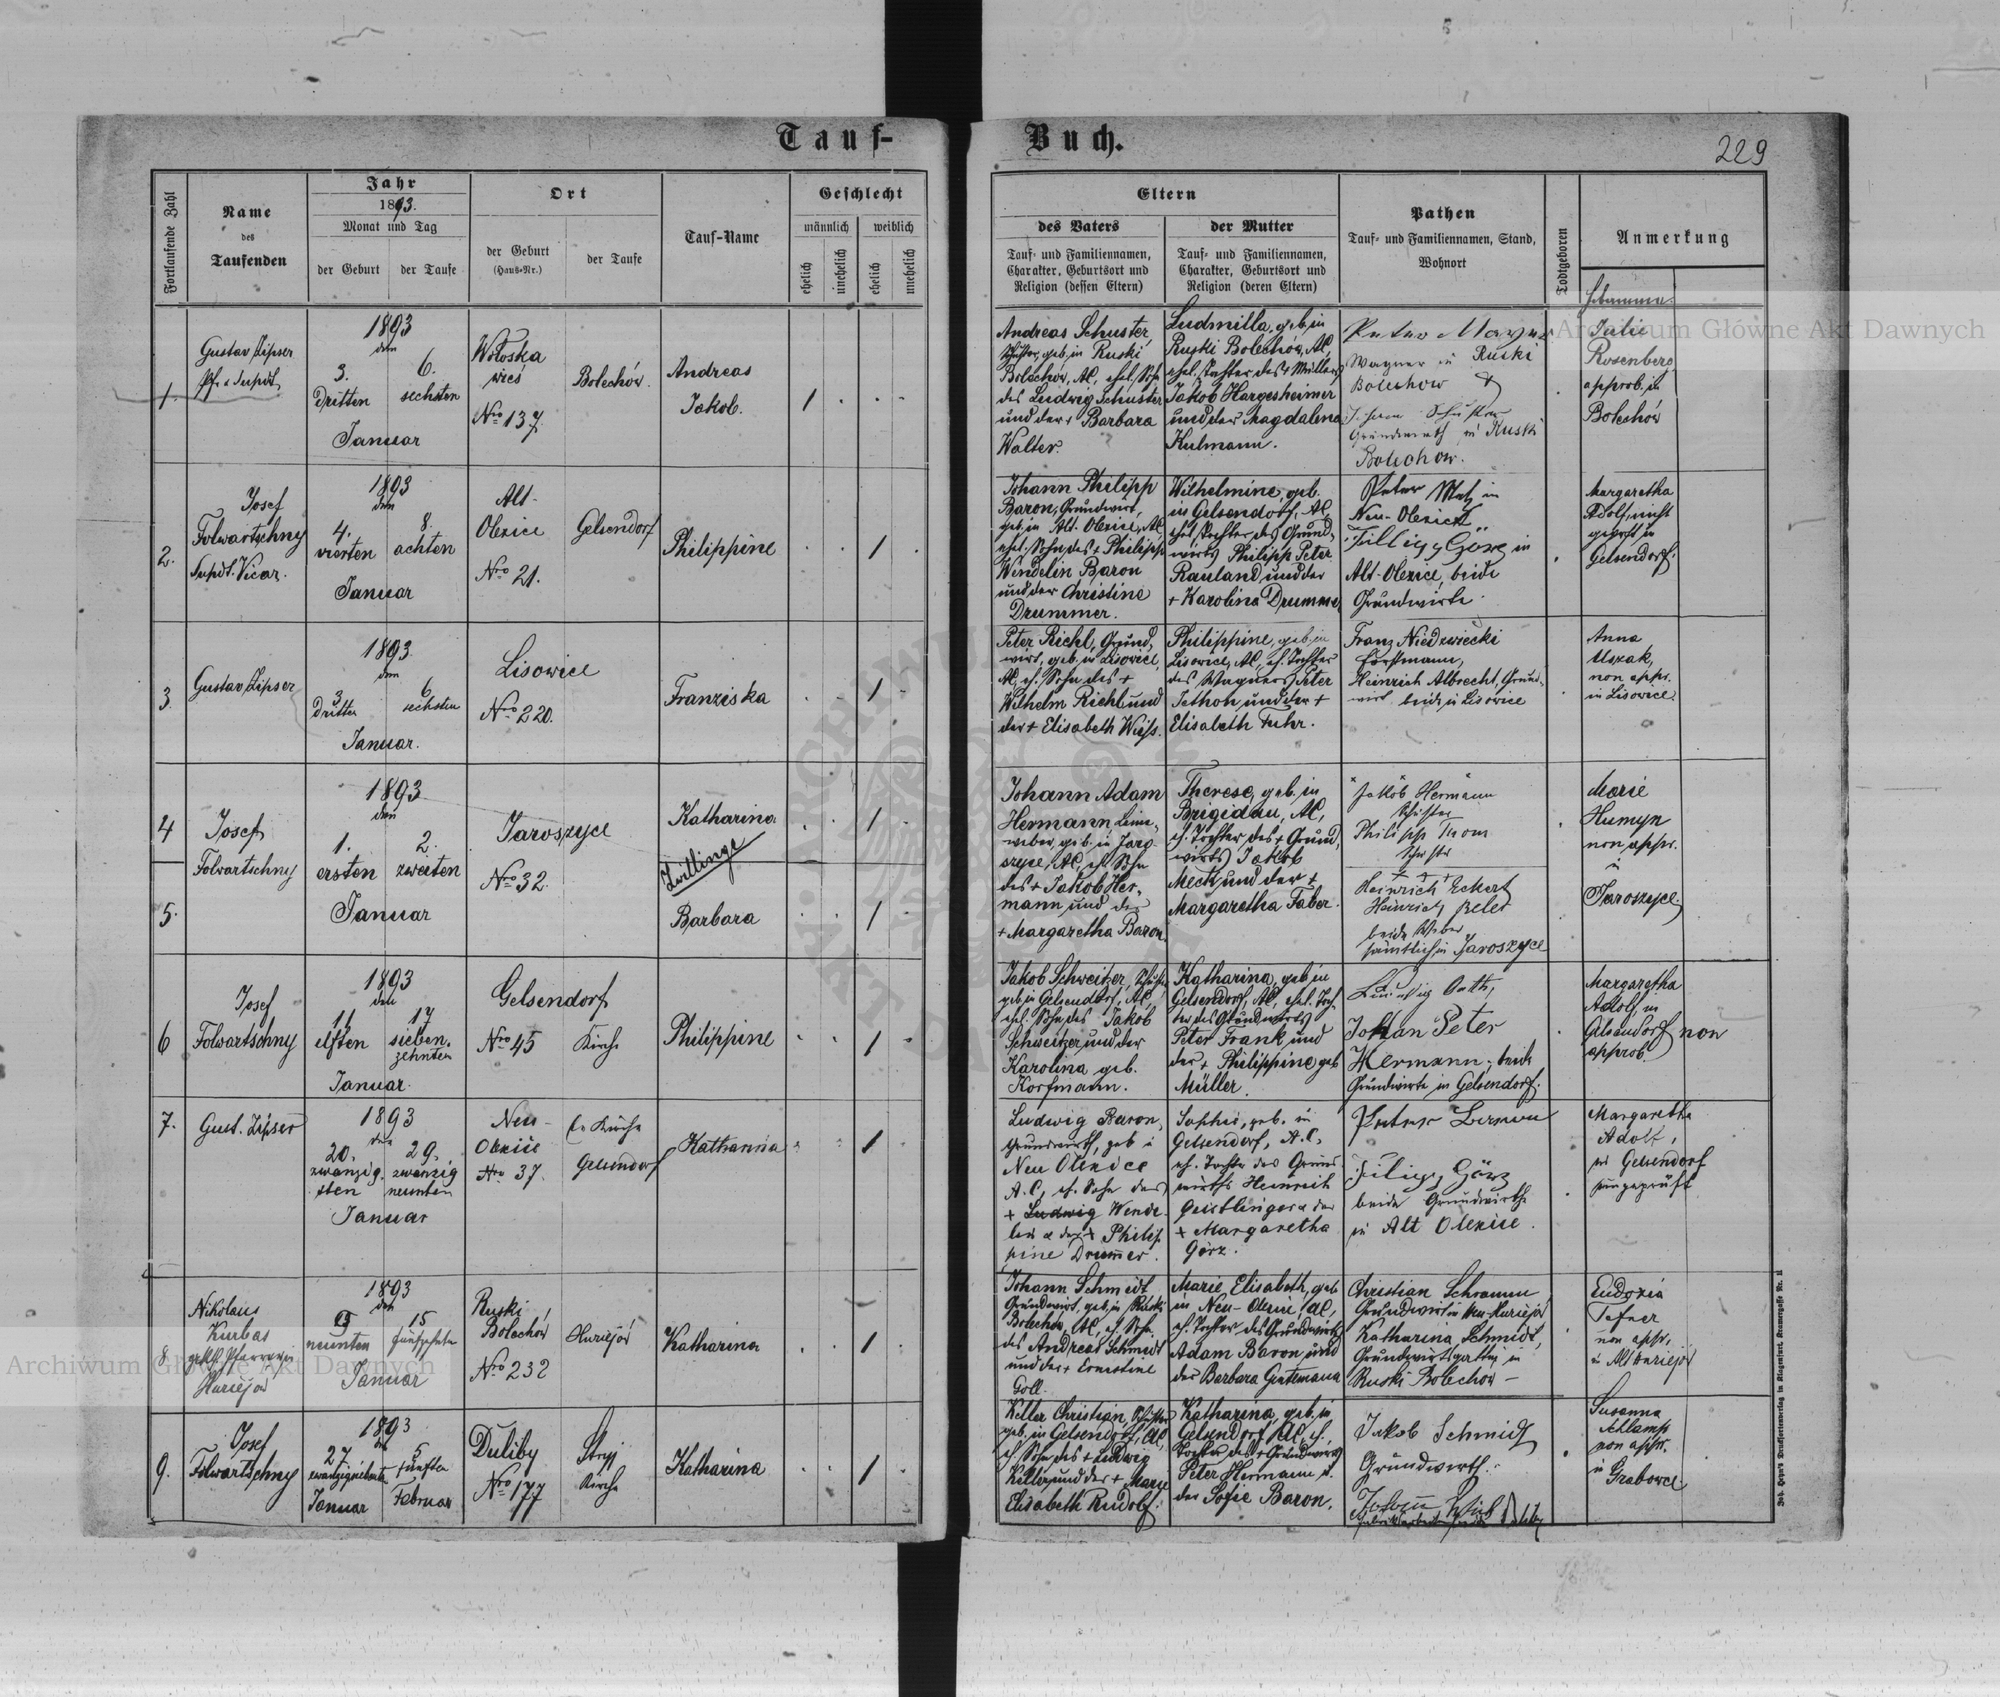 Tauf-
Buch.
229
Fortlaufende Zahl
Name
des
Taufenden
Jahr
1893.
Monat und Tag
der Geburt
der Taufe
Ort
der Geburt
(Haus-Nr.)
der Taufe
Tauf-Name
Geschlecht
männlich
weiblich
ehelich
unehelich
ehelich
unehelich
Eltern
des Vaters
Tauf- und Familiennamen,
Charakter, Geburtsort und
Religion (dessen Eltern)
der Mutter
Tauf- und Familiennamen,
Charakter, Geburtsort und
Religion (deren Eltern)
Pathen
Tauf- und Familiennamen, Stand,
Wohnort
Todtgeboren
Anmerkung
Hebamme
1.
Gustav Lipser
1893
den
3.
dritten
6.
sechsten
Januar
Wołoska
wieś
Nro 137.
Bolechów.
Andreas
Jakob.
1
Andreas Schuster,
Schuster, geb. in Ruski
Bolechów, AC, ehel. Sohn
des Ludwig Schuster
und der + Barbara
Walter.
Ludmilla, geb. in
Ruski Bolechów, AC,
ehel. Tochter des + Müllers
Jakob Hargesheimer
und der Magdalena
Kulmann.
Peter Mayer
Wagner in Ruski
Bolechow
Schuster
Grundwirth in Ruski
Bolechow.
Julie
Rosenberg
approb. in
Bolechów
2.
Josef
Folwartschny
Supdt. Vicar.
1893
den
4.
vierten
8.
achten
Januar
Alt-
Olexice
Nro 21.
Gelsendorf
Philippine
1
Johann Philipp
Baron, Grundwirt,
geb. in Alt-Olexice, AC,
ehel. Sohn des + Philipp
Wendelin Baron
und der Christine
Drummer.
Wilhelmine, geb.
in Gelsendorf, AC,
ehel. Tochter des Grund-
wirts Philipp Peter
Rauland und der
+ Karolina Drummer
Peter Metz in
Neu-Olexice,
Filipp Görz in
Alt-Olexice, beide
Grundwirte
Margaretha
Adolf, nicht
geprüft in
Gelsendorf.
3.
Gustav Lipser
1893
den
3
dritten
6
sechsten
Januar.
Lisowice
Nro 220.
Franziska
1
Peter Riehl, Grund-
wirt, geb. in Lisowice,
AC, eh. Sohn des +
Wilhelm Riehl und
der + Elisabeth Weiss.
Philippine, geb. in
Lisowice, AC, eh. Tochter
des Wagners Peter
Jethon und der +
Elisabeth Fuhr.
Franz Niedzwiecki
Forstmann,
Heinrich Albrecht, Grund-
wirt beide in Lisowice
Anna
Uszak,
non appr.
in Lisowice.
4
5.
Josef
Folwartschny
1893
den
1.
ersten
2.
zweiten
Januar
Jaroszyce
Nro 32.
Katharina
Zwillinge
Barbara
1
1
Johann Adam
Hermann Lein-
weber, geb. in Jaro-
szyce, AC, eh. Sohn
des + Jakob Her-
mann und der
+ Margaretha Baron.
Therese, geb. in
Brigidau, AC,
eh. Tochter des + Grund-
wirts Jakob
Meck und der +
Margaretha Faber.
Jakob Hermann
Schuster
Philipp Thom
Heinrich Eckert
Heinrich Beler
beide Weber
sämtlich in Jaroszyce
Marie
Humyn
non appr.
in
Jaroszyce.
6
Josef
Folwartschny
1893
den
11
elften
17
sieben-
zehnten
Januar.
Gelsendorf
Nro 45
Kirche
Philippine
1
Jakob Schweitzer, Schuster
geb. in Gelsendorf, AC,
ehel. Sohn des Jakob
Schweitzer und der
Karolina geb.
Korfmann.
Katharina, geb. in
Gelsendorf, AC, ehel. Toch-
ter des Grundwirts
Peter Frank und
der + Philippine geb
Müller.
Ludwig
Johan Peter
Hermann, beide
Grundwirte in Gelsendorf.
Margaretha
Adolf, in
Gelsendorf non
approb.
7.
Gust. Lipser
1893
den
20.
zwanzig-
sten
29.
zwanzig
neunten
Januar
Neu-
Olexice
Nro 37.
Kirche
Gelsendorf
Katharina
1
Ludwig Baron,
Grundwirth, geb in
Neu Olexice
A.C., eh. Sohn des
+ Ludwig Wende-
lin & der + Philip-
pine Drummer.
Sophie, geb. in
Gelsendorf, A.C.,
eh. Tochter des Grund-
wirths Heinrich
& der
+ Margaretha
Görz.
Peter
Filipp Görz
beide Grundwirthe
in Alt Olexice.
Margaretha
Adolf,
in Gelsendorf
ungeprüft
8
Nikolaus
Kurbas
Huriejów
1893
den
9
neunten
15
fünfzehnten
Januar
Ruski
Bolechów
Nro 232
Huriejów
Katharina
1
Johann Schmidt
Grundwirt, geb. in Ruski
Bolechów, AC, eh. Sohn
des Andreas Schmidt
und der + Ernestine
Goll.
Marie Elisabeth, geb
in Neu-Olexice, AC,
eh. Tochter des Grundwirts
Adam Baron und
der Barbara Gutemana
Christian Schramm
Grundwirt in Neu-Huriejów
Katharina Schmidt,
Grundwirtsgattin in
Ruski Bolechow -
Eudoxia
Tefner
non appr.
in Alt Huriejów
9.
Josef
Folwartschny
1893
den
27
Januar
5
fünften
Februar
Duliby
Nro 177
Stryj
Kirche
Katharina
1
Keller Christian, Schuster
geb. in Gelsendorf, AC,
eh. Sohn des + Ludwig
Keller und der + Marie
Elisabeth Rudolf.
Katharina, geb. in
Gelsendorf, AC, eh.
Tochter des + Grundwirts
Peter Hermann u.
der Sofie Baron.
Jakob Schmidt
Grundwirth.
Susanna
Schlamp
non appr.
in Grabowce.
Archiwum Główne Akt Dawnych
Archiwum Główne Akt Dawnych